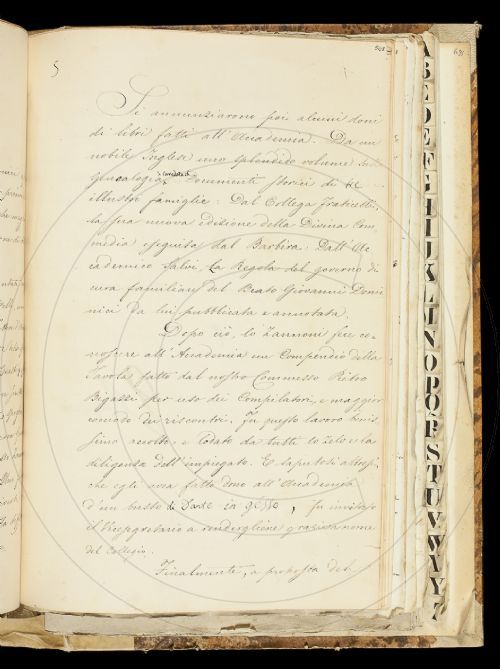 5
Si annunziarono poi alcuni doni
di libri fatti all'Accademia. Da un
nobile Inglese uno splendido volume di
genealogia, corredata di Documenti storici di
illustri famiglie: Dal Collega Fraticelli,
la sua nuova edizione della Divina Com
media eseguita dal Barbèra. Dall'Ac
cademico Salvi, La Regola del governo di
cura familiare del Beato Giovanni Domi
nici da lui pubblicata e annotata.
Dopo ciò, lo Zannoni fece co-
noscere all'Accademia un Compendio della
Tavola fatto dal nostro Commesso Pietro
Bigazzi per uso dei Compilatori, e maggior
comodo dei riscontri. Fu questo lavoro benis
simo accolto, e lodato da tutti lo zelo e la
diligenza dell'impiegato. E saputosi altresì,
che egli avea fatto dono all'Accademia
d'un busto di Dante in gesso, fu invitato
il Vicesegretario a rendergliene grazie a nome
del Collegio.
Finalmente, a proposta del
A
B
C
D
E
F
G
H
I
J
K
L
M
N
O
P
Q
R
S
T
U
V
W
X
Y
Z